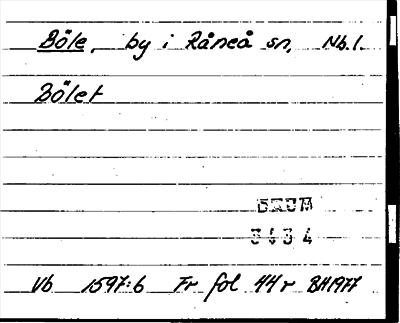 Böle, by i Råneå sn, Nb.l.
Bölet
3434
Vb 1597:6 Fr fol 44r BH1977